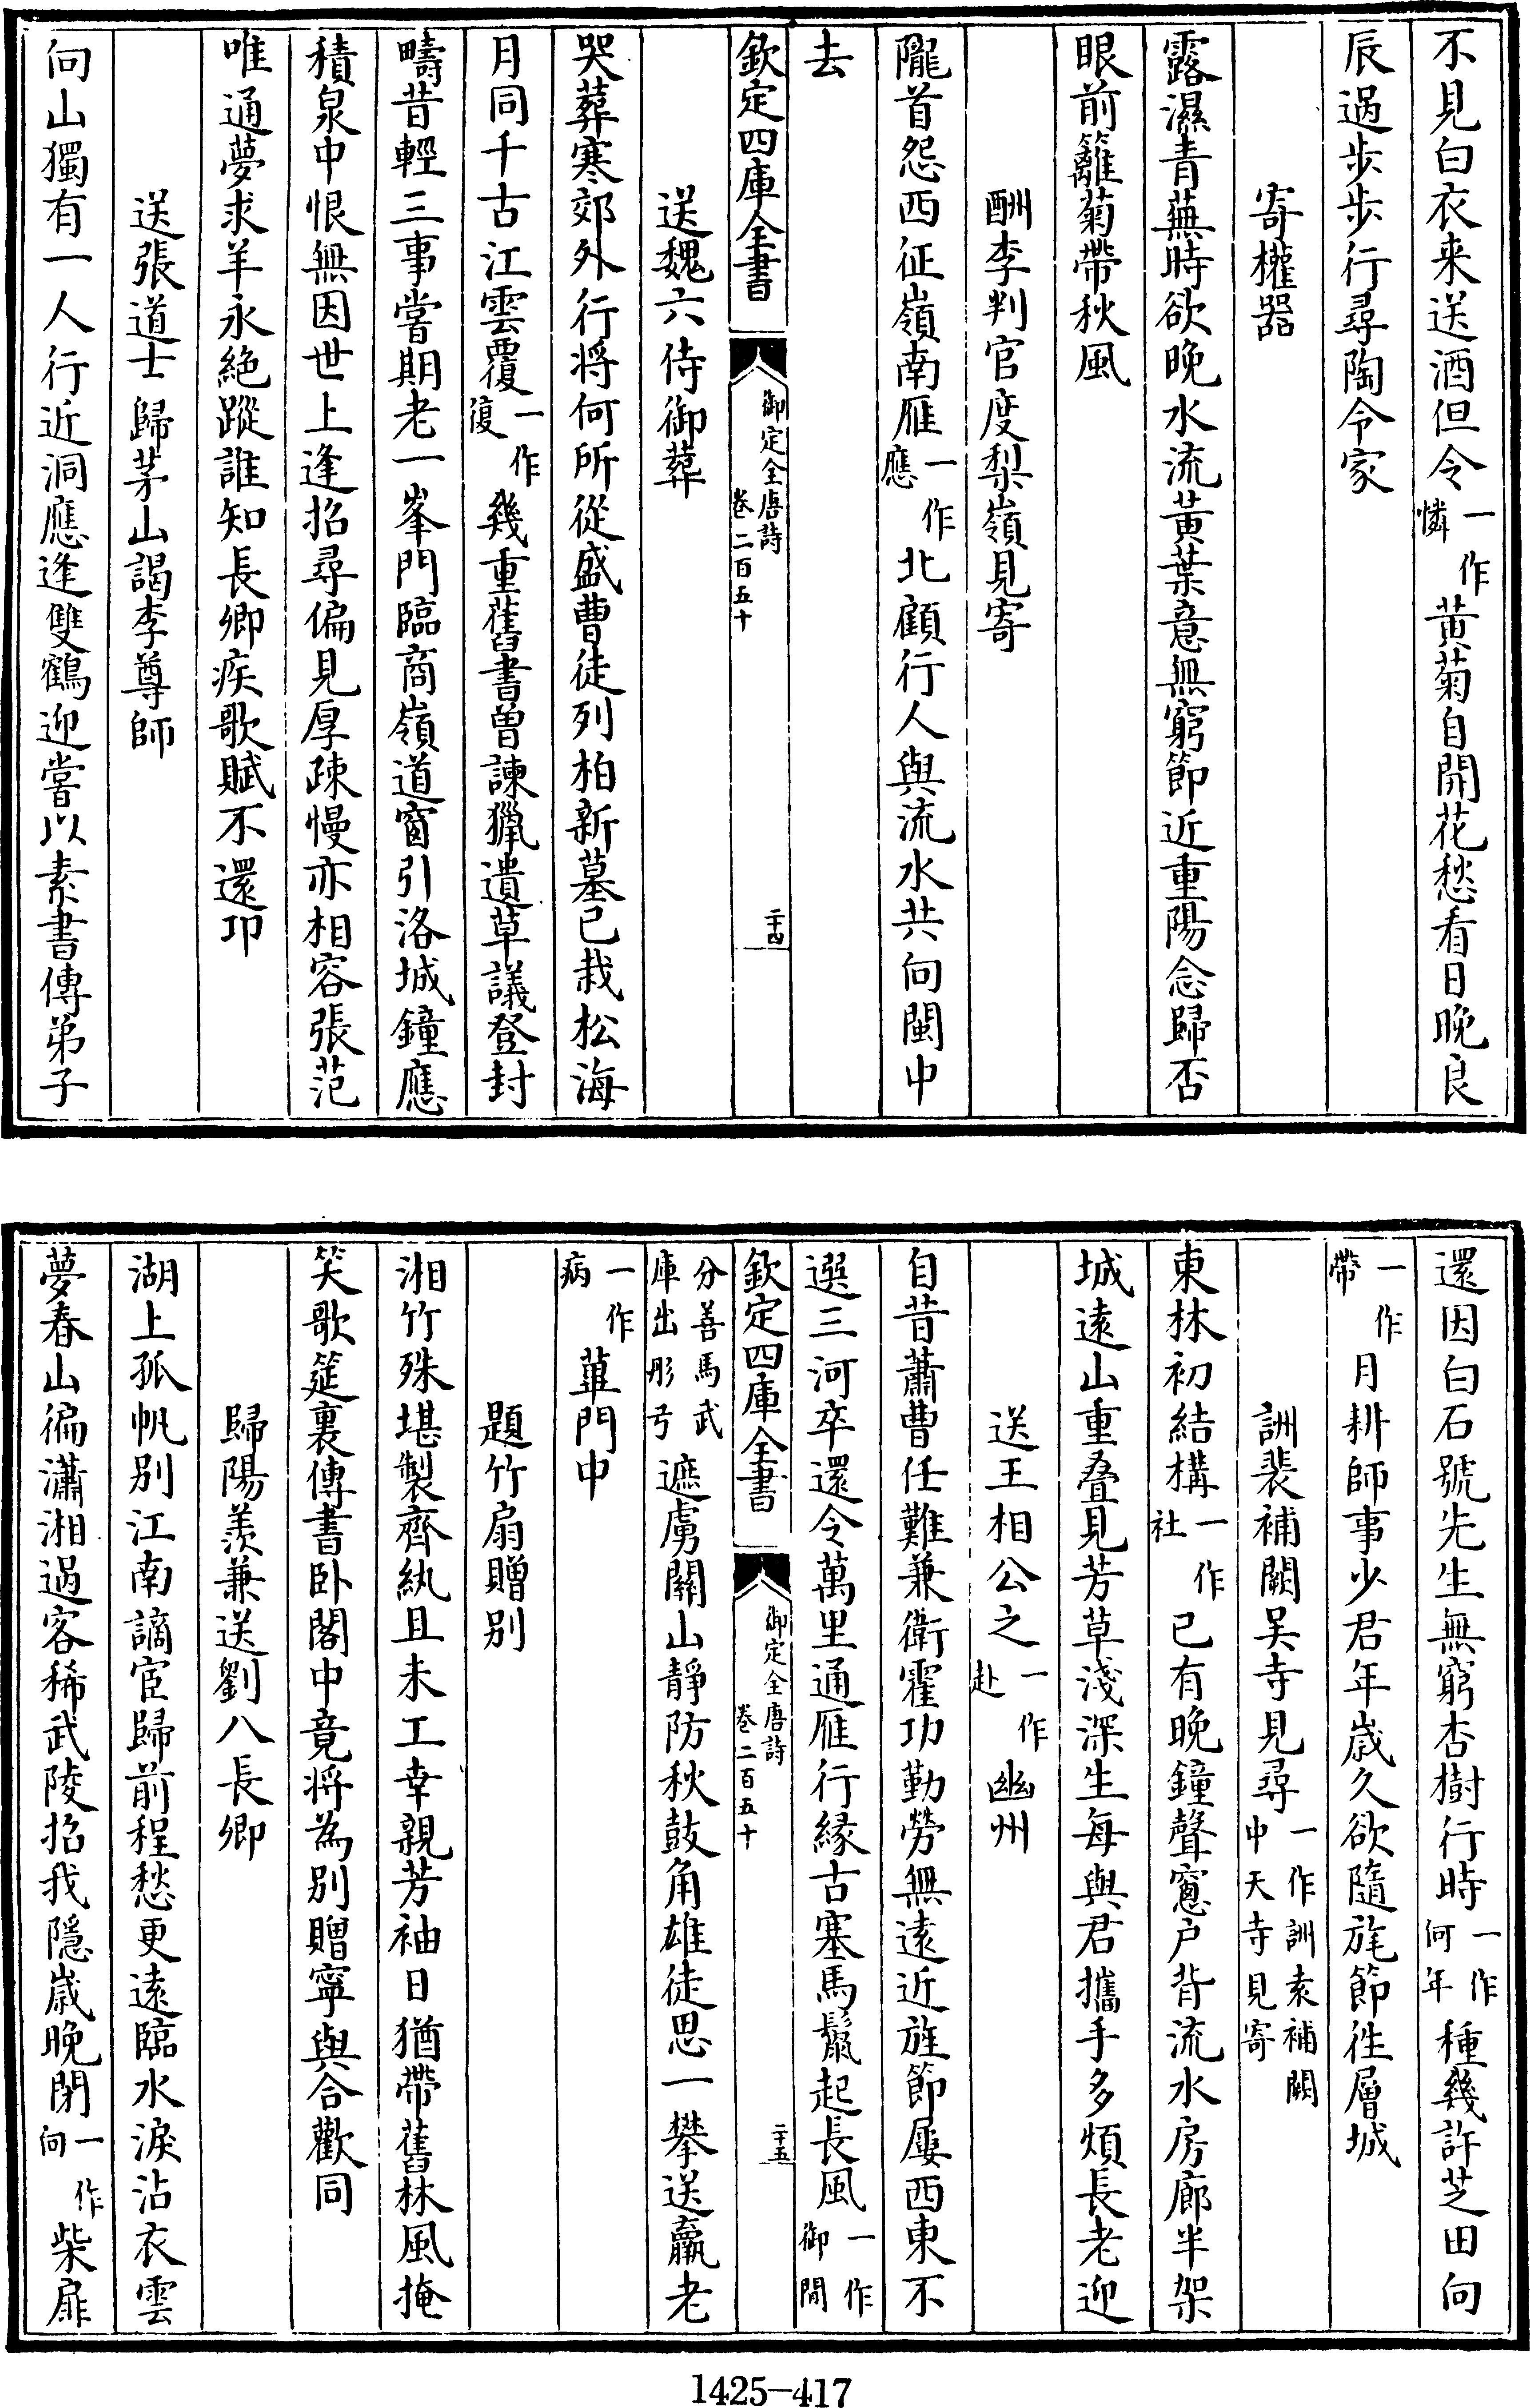 不見白衣来送酒但令一作憐黄菊自開花愁看日晚良
辰過步步行尋陶令家
寄權器
露濕青蕪時欲晚水流黄葉意無窮節近重陽念歸否
眼前籬菊帶秋風
酬李判官度梨嶺見寄
隴首怨西征嶺南雁一作應北顧行人與流水共向閩中
去
欽定四庫全書
御定全唐詩
卷二百五十
二十四
送魏六侍御葬
哭葬寒郊外行将何所從盛曹徒列柏新墓已栽松海
月同千古江雲覆一作復幾重舊書曽諫獵遺草議登封
疇昔輕三事嘗期老一峯門臨商嶺道窗引洛城鐘應
積泉中恨無因世上逢招尋偏見厚疎慢亦相容張范
唯通夢求羊永絶蹤誰知長卿疾歌賦不還卭
送張道士歸茅山謁李尊師
向山獨有一人行近洞應逢雙鶴迎嘗以素書傳弟子
還因白石號先生無窮杏樹行時一作何年種幾許芝田向
一作帶月耕師事少君年歳久欲隨旄節徃層城
詶裴補闕吴寺見尋一作詶袁補闕中天寺見寄
東林初結構一作社已有晚鐘聲窻户背流水房廊半架
城遠山重叠見芳草淺深生每與君攜手多煩長老迎
送王相公之一作赴幽州
自昔蕭曹任難兼衛霍功勤勞無遠近旌節屢西東不
選三河卒還令萬里通雁行縁古塞馬鬛起長風一作御閒
欽定四庫全書
御定全唐詩
卷二百五十
二十五
分善馬武庫出彤弓遮虜關山靜防秋鼓角雄徒思一攀送羸老
一作病蓽門中
題竹扇贈别
湘竹殊堪製齊紈且未工幸親芳袖日猶帶舊林風掩
笑歌筵裏傳書卧閣中竟将為别贈寧與合歡同
歸陽羨兼送劉八長卿
湖上孤帆别江南謫宦歸前程愁更遠臨水淚沾衣雲
夢春山徧瀟湘過客稀武陵招我隱歳晚閉一作向柴扉
1425—417